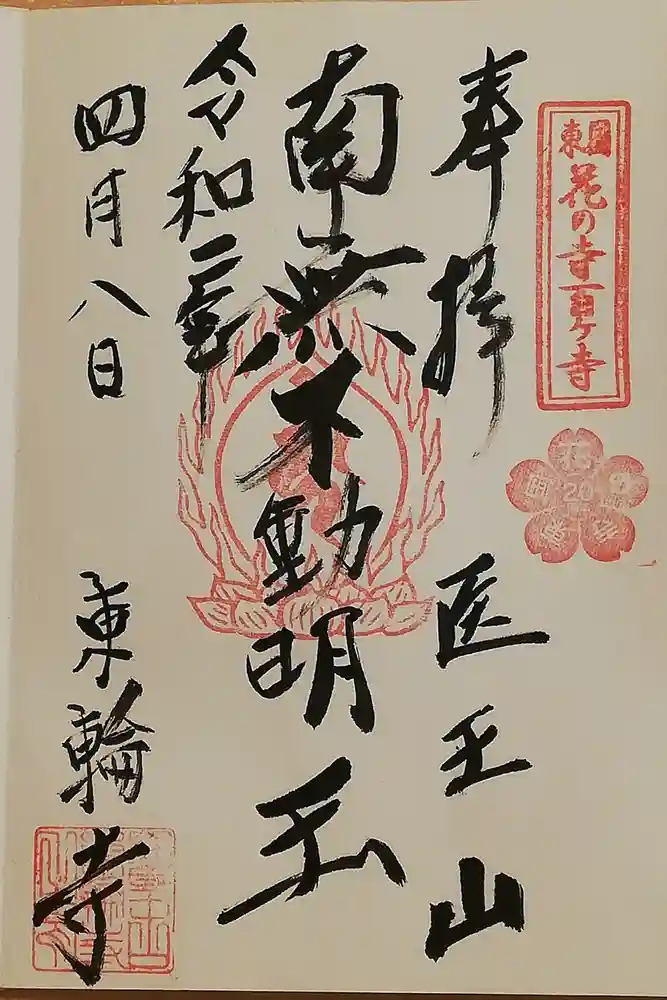 東國花の寺百ヶ寺
20
奉拝 医王山
南無不動明王
令和
四月八日 東輪寺